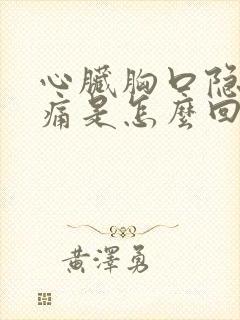 心臟胸口隐
痛是怎麼回
黃澤勇